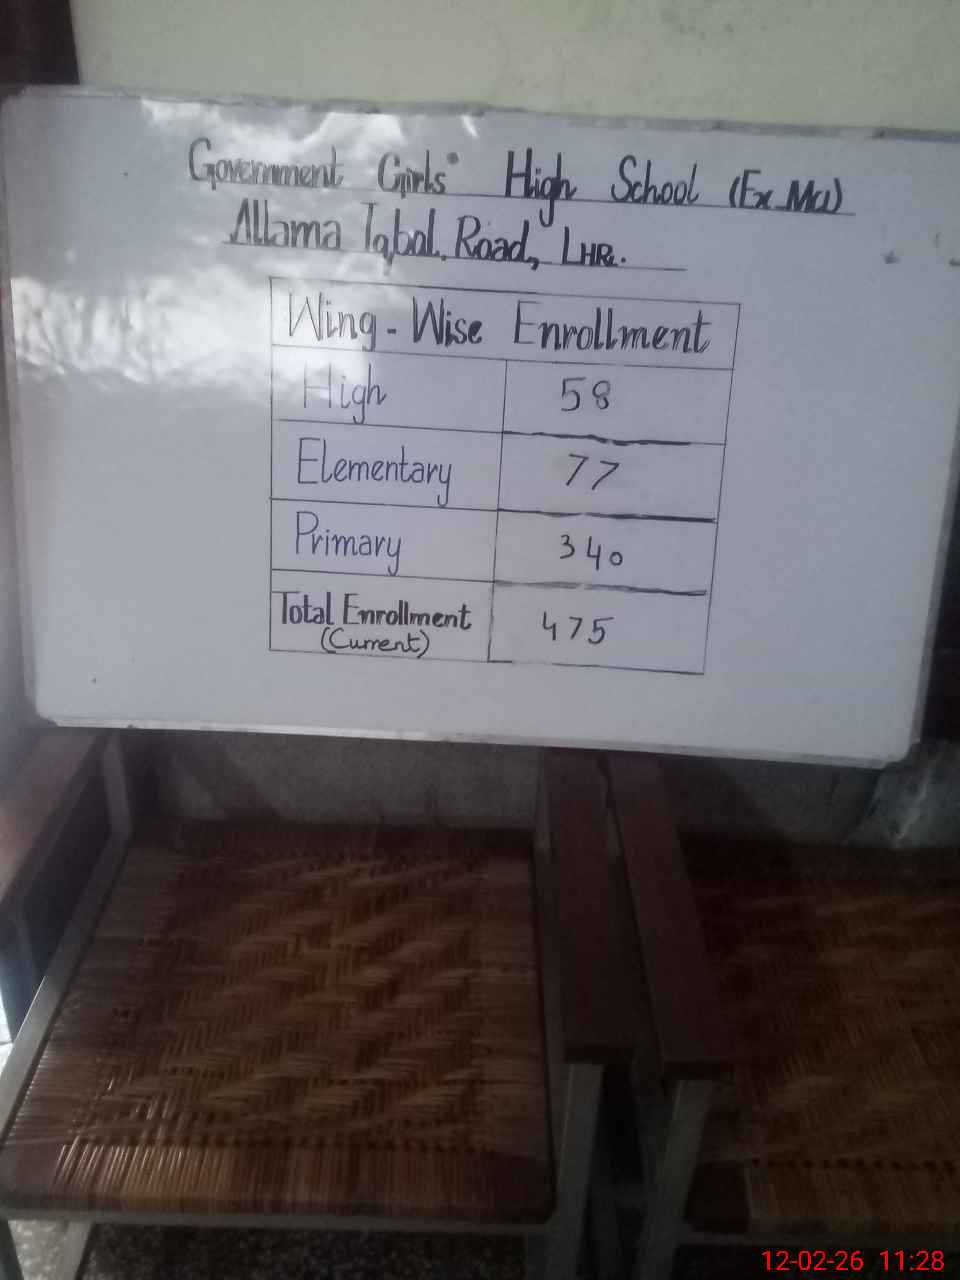 Government Girls' High School (Ex Mcl)
Allama Iqbal Road, LHR.
Wing - Wise Enrollment
High 58
Elementary 77
Primary 340
Total Enrollment 475
(Current)
12-02-26 11:28